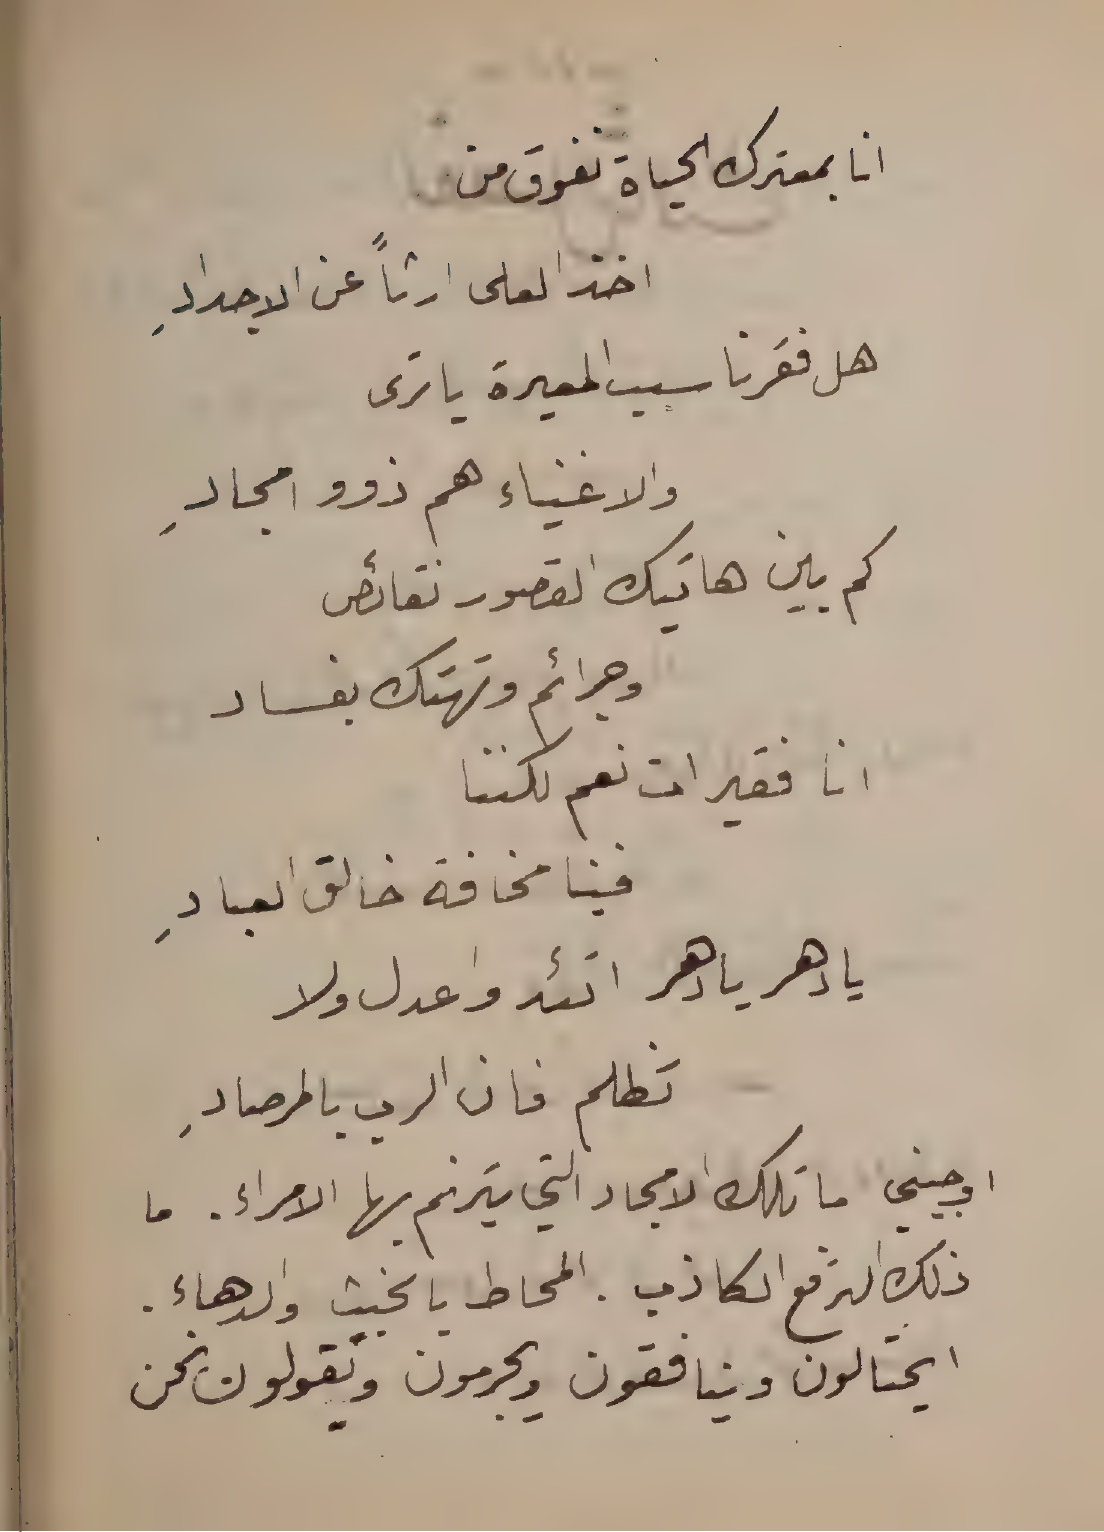 انا بمعترك الحياة نفوق من
اخذ العلى ارثاً عن الاجدادِ
هل فقرنا سبب المعيرة يا ترى
والاغنياء هم ذوو امجادِ
كم بين هاتيك القصور نقائص
وجرائم وتهتك بفساد
انا فقيرات نعم لكننا
فينا مخافة خالق العبادِ
يا دهر يا دهر اتئد واعدل ولا
تظلم فان الرب بالمرصادِ
اوجيني ما تلك الامجاد التي يترنم بها الامراء. ما
ذلك الترفع الكاذب. المحاط بالخبث والدهاء.
ايحتالون وينافقون ويجرمون ويقولون نحن